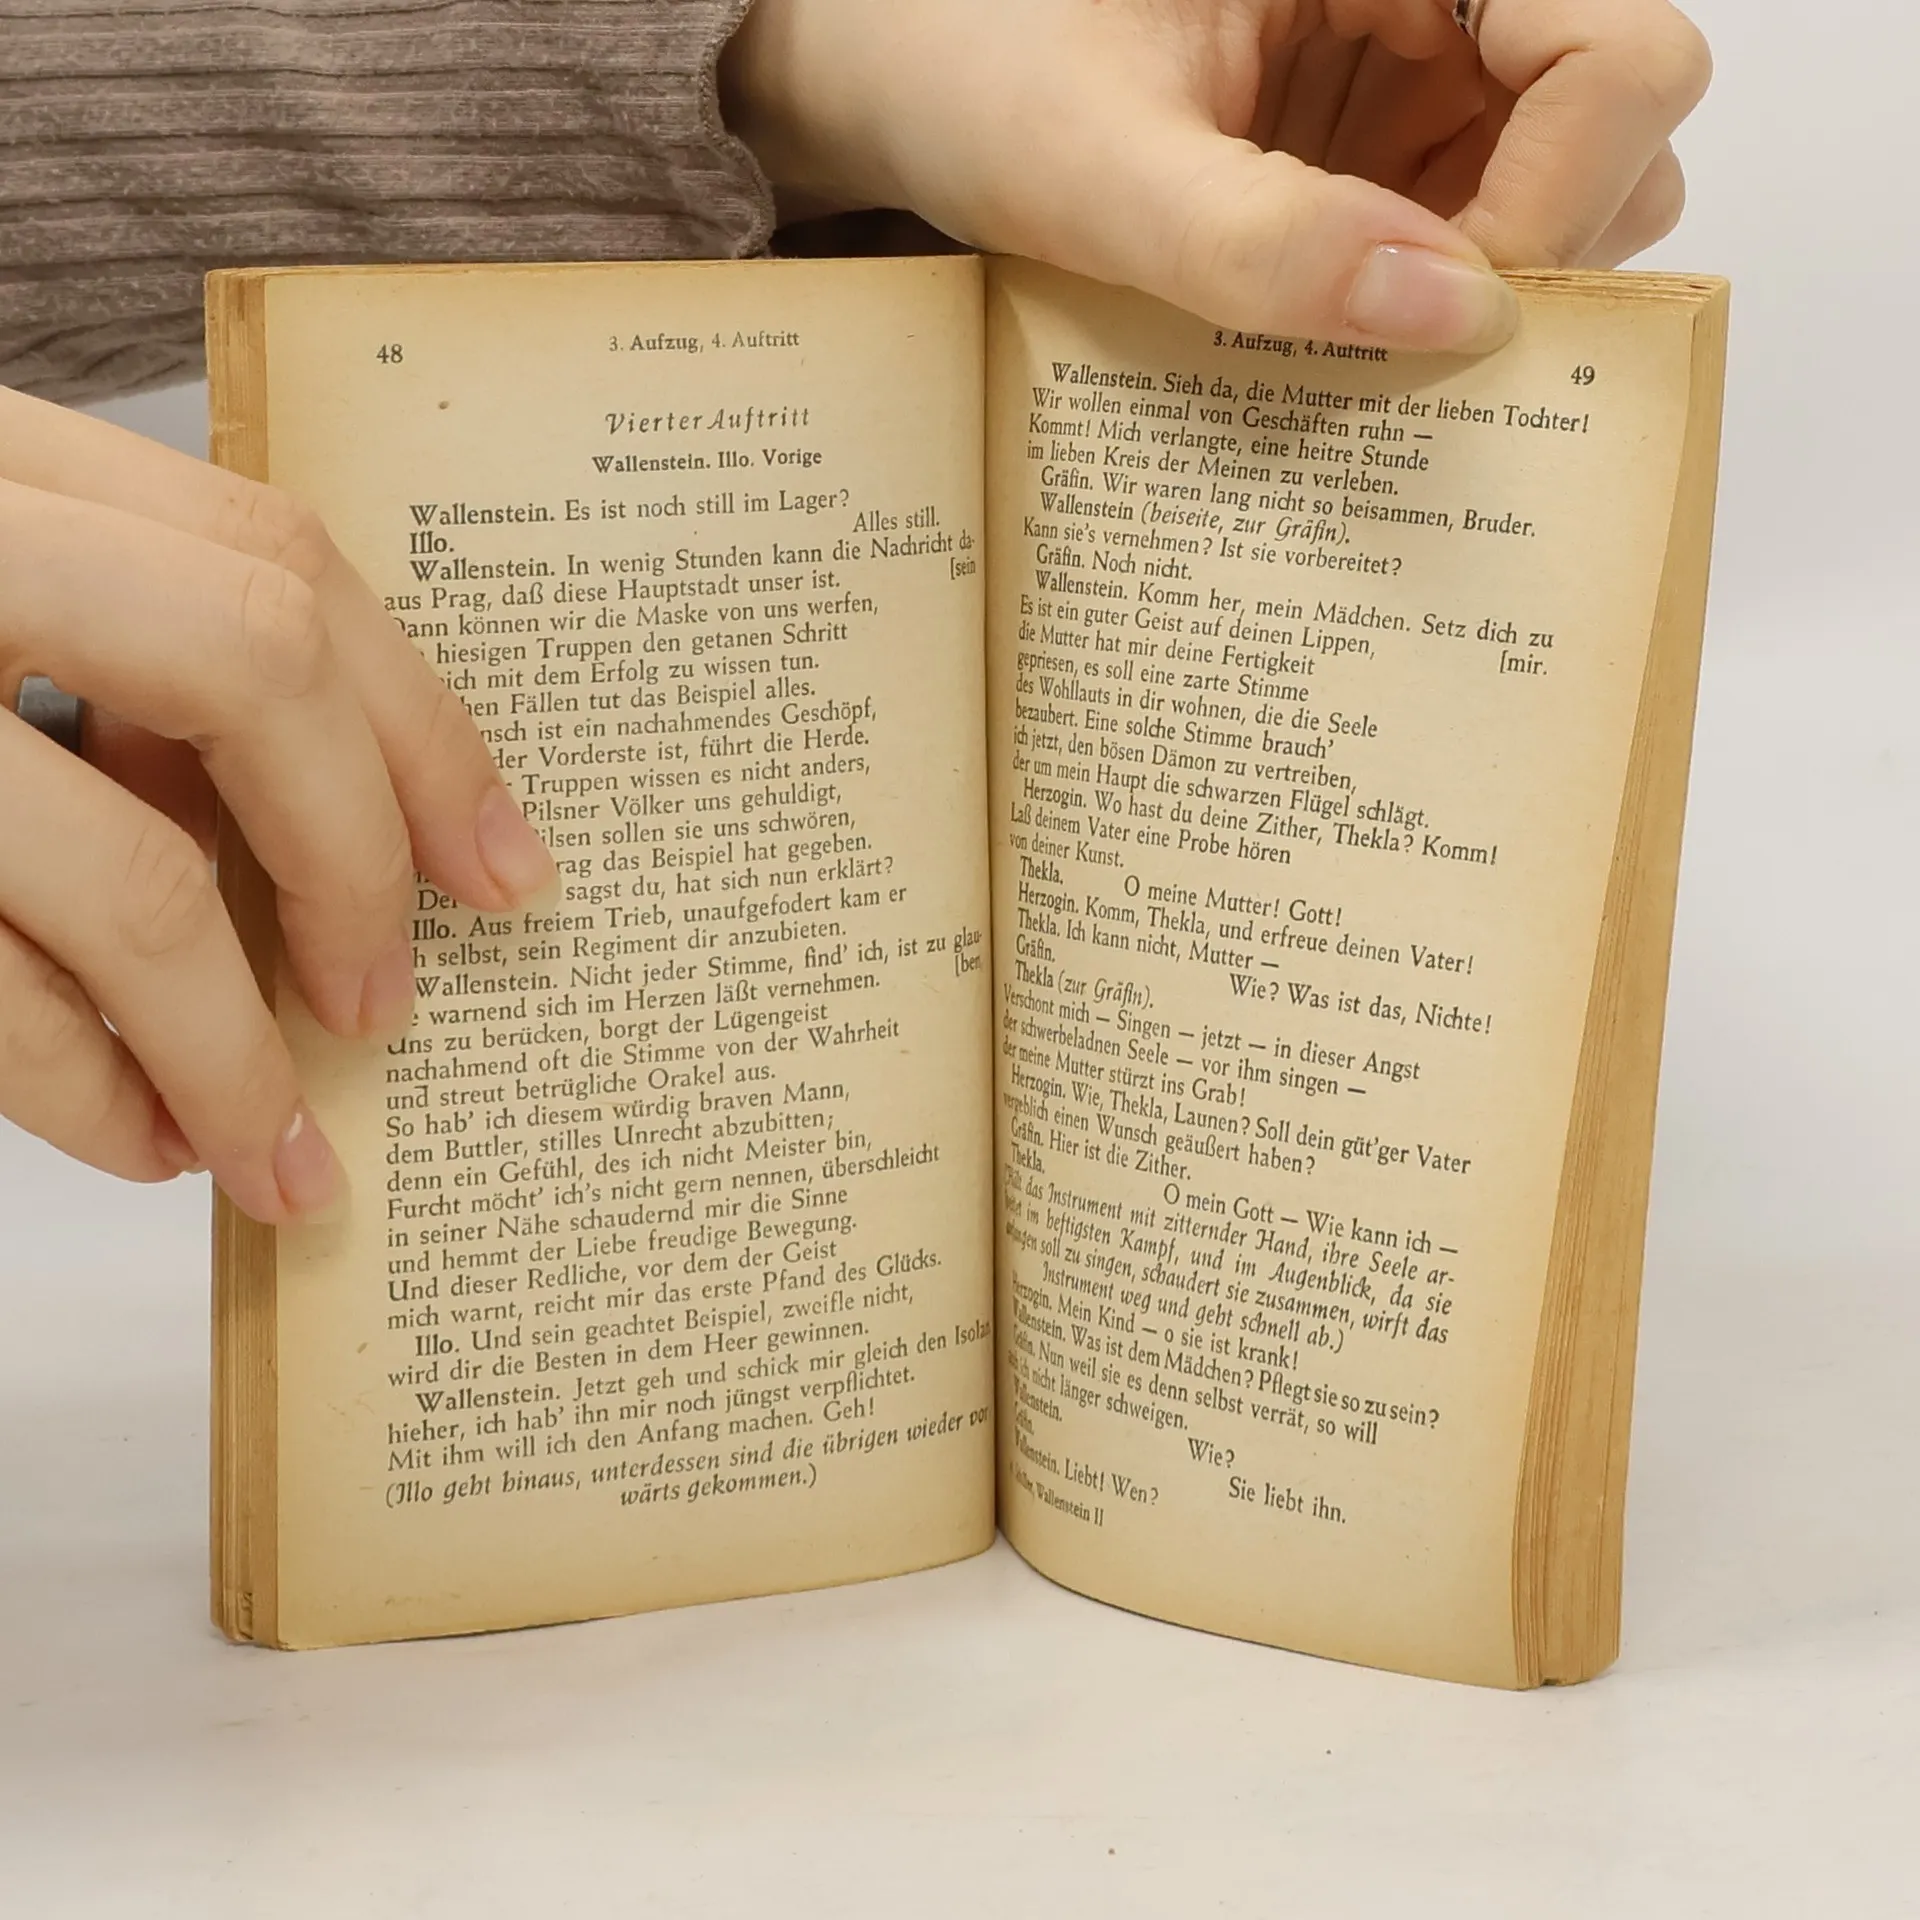 48
3. Aufzug, 4. Auftritt
Vierter Auftritt
Wallenstein. Illo. Vorige
Wallenstein. Es ist noch still im Lager?
Illo. Alles still.
Wallenstein. In wenig Stunden kann die Nachricht da-
aus Prag, daß diese Hauptstadt unser ist. [sein
Dann können wir die Maske von uns werfen,
hiesigen Truppen den getanen Schritt
mit dem Erfolg zu wissen tun.
Fällen tut das Beispiel alles.
ist ein nachahmendes Geschöpf,
der Vorderste ist, führt die Herde.
Truppen wissen es nicht anders,
Pilsner Völker uns gehuldigt,
sollen sie uns schwören,
das Beispiel hat gegeben.
sagst du, hat sich nun erklärt?
Illo. Aus freiem Trieb, unaufgefodert kam er
selbst, sein Regiment dir anzubieten.
Wallenstein. Nicht jeder Stimme, find' ich, ist zu glau-
warnend sich im Herzen läßt vernehmen. [ben,
Uns zu berücken, borgt der Lügengeist
nachahmend oft die Stimme von der Wahrheit
und streut betrügliche Orakel aus.
So hab' ich diesem würdig braven Mann,
dem Buttler, stilles Unrecht abzubitten;
denn ein Gefühl, des ich nicht Meister bin,
Furcht möcht' ich's nicht gern nennen, überschleicht
in seiner Nähe schaudernd mir die Sinne
und hemmt der Liebe freudige Bewegung.
Und dieser Redliche, vor dem der Geist
mich warnt, reicht mir das erste Pfand des Glücks.
Illo. Und sein geachtet Beispiel, zweifle nicht,
wird dir die Besten in dem Heer gewinnen.
Wallenstein. Jetzt geh und schick mir gleich den Isolan
hieher, ich hab' ihn mir noch jüngst verpflichtet.
Mit ihm will ich den Anfang machen. Geh!
(Illo geht hinaus, unterdessen sind die übrigen wieder vor-
wärts gekommen.)
3. Aufzug, 4. Auftritt
49
Wallenstein. Sieh da, die Mutter mit der lieben Tochter!
Wir wollen einmal von Geschäften ruhn —
Kommt! Mich verlangte, eine heitre Stunde
im lieben Kreis der Meinen zu verleben.
Gräfin. Wir waren lang nicht so beisammen, Bruder.
Wallenstein (beiseite, zur Gräfin).
Kann sie's vernehmen? Ist sie vorbereitet?
Gräfin. Noch nicht.
Wallenstein. Komm her, mein Mädchen. Setz dich zu
Es ist ein guter Geist auf deinen Lippen, [mir.
die Mutter hat mir deine Fertigkeit
gepriesen, es soll eine zarte Stimme
des Wohllauts in dir wohnen, die die Seele
bezaubert. Eine solche Stimme brauch'
ich jetzt, den bösen Dämon zu vertreiben,
der um mein Haupt die schwarzen Flügel schlägt.
Herzogin. Wo hast du deine Zither, Thekla? Komm!
Laß deinem Vater eine Probe hören
von deiner Kunst.
Thekla. O meine Mutter! Gott!
Herzogin. Komm, Thekla, und erfreue deinen Vater!
Thekla. Ich kann nicht, Mutter —
Gräfin. Wie? Was ist das, Nichte!
Thekla (zur Gräfin).
Verschont mich — Singen — jetzt — in dieser Angst
der schwerbeladnen Seele — vor ihm singen —
der meine Mutter stürzt ins Grab!
Herzogin. Wie, Thekla, Launen? Soll dein güt'ger Vater
vergeblich einen Wunsch geäußert haben?
Gräfin. Hier ist die Zither.
Thekla. O mein Gott — Wie kann ich —
(Hält das Instrument mit zitternder Hand, ihre Seele ar-
beitet im heftigsten Kampf, und im Augenblick, da sie
anfangen soll zu singen, schaudert sie zusammen, wirft das
Instrument weg und geht schnell ab.)
Herzogin. Mein Kind — o sie ist krank!
Wallenstein. Was ist dem Mädchen? Pflegt sie so zu sein?
Gräfin. Nun weil sie es denn selbst verrät, so will
auch ich nicht länger schweigen.
Wallenstein. Wie?
Gräfin. Sie liebt ihn.
Wallenstein. Liebt! Wen?
Schiller, Wallenstein II